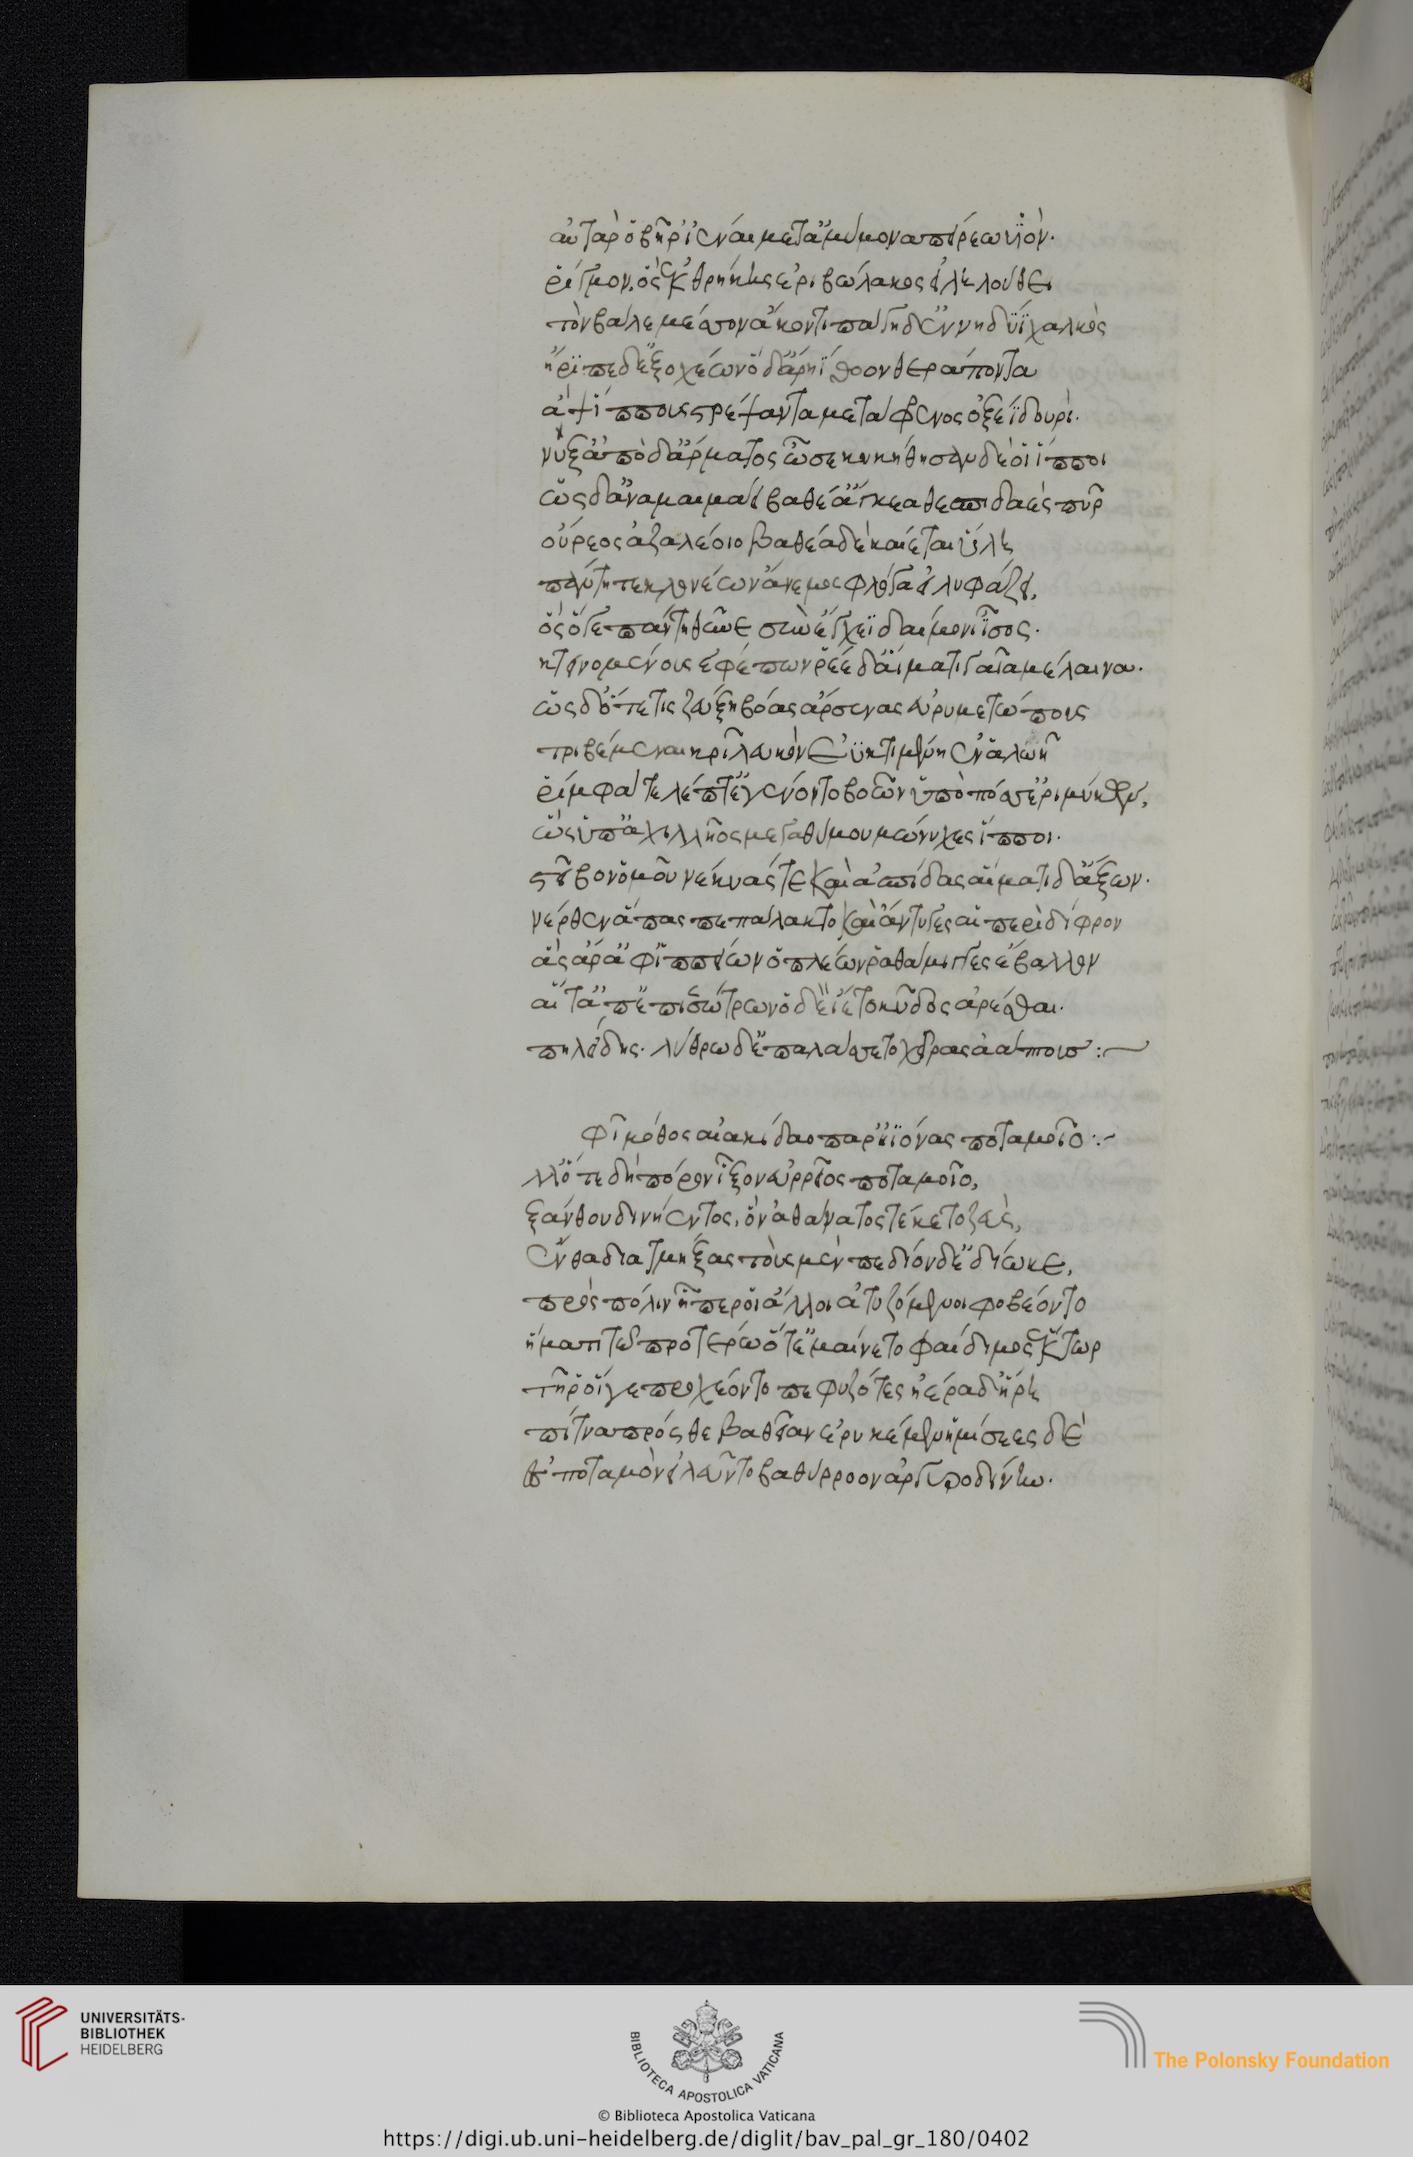 αὐτὰρ ὃ βῆ ῥ' ἰέναι μετ' ἀμύμονα πείρεω υἱὸν.
ῥίγμον, ὃς ἐκ θρήκης ἐριβώλακος εἰληλούθει
τὸν βάλε μέσσον ἄκοντι πάγη δ' ἐν νηδύϊ χαλκὸς
ἤριπε δ' ἐξ ὀχέων ὃ δ' ἀρηΐθοον θεράποντα
ἂψ ἵππους στρέψαντα μετάφρενον ὀξέϊ δουρὶ.
νύξ' ἀπὸ δ' ἅρματος ὦσε κυκήθησαν δὲ οἱ ἵπποι
ὣς δ' ἀναμαιμάει βαθέ' ἄγκεα θεσπιδαὲς πῦρ
οὔρεος ἀζαλέοιο βαθέα δὲ καίεται ὕλη
πάντη τε κλονέων ἄνεμος φλόγα εἰλυφάζει,
ὣς ὅγε πάντη θῦνε σὺν ἔγχεϊ δαίμονι ἶσος.
κτεινομένους ἐφέπων ῥέε δ' αἵματι γαῖα μέλαινα.
ὡς δ' ὅτε τις ζεύξη βόας ἄρσενας εὐρυμετώπους
τριβέμεναι κρῖ λευκὸν ἐϋκτιμένη ἐν ἀλωῆ
ῥίμφα τε λέπτ' ἐγένοντο βοῶν ὑπὸ πόσσ' ἐριμύκων,
ὣς ὑπ' ἀχιλλῆος μεγαθύμου μώνυχες ἵπποι.
στεῖβον ὁμοῦ νέκυάς τε καὶ ἀσπίδας αἵματι δ' ἄξων.
νέρθεν ἅπας πεπάλακτο καὶ ἄντυγες αἳ περὶ δίφρον
ἃς ἄρ' ἀφ' ἱππείων ὁπλέων ῥαθάμιγγες ἔβαλλον
αἵ τ' ἀπ' ἐπισσώτρων ὃ δὲ ἵετο κῦδος ἀρέσθαι.
πηλείδης. λύθρω δὲ παλάσσετο χεῖρας ἀάπτους :~
Φῖ μόθος αἰακίδαο παρ' ἠϊόνας ποταμοῖο :~
λλ' ὅτε δὴ πόρον ἷξον ἐϋρρεῖος ποταμοῖο,
ξάνθου δινήεντος, ὃν ἀθάνατος τέκετο ζεὺς,
ἔνθα διατμήξας τοὺς μὲν πεδίον δὲ δίωκε,
πρὸς πόλιν ἧ περ οἱ ἄλλοι ἀτυζόμενοι φοβέοντο
ἤματι τῶ προτέρω ὅτε μαίνετο φαίδιμος ἕκτωρ
τῆ ῥ' οἵγε προχέοντο πεφυζότες ἠέρα δ' ἥρη
πίτνα πρόσθε βαθεῖαν ἐρυκέμεν ἡμίσεες δὲ
ἐς ποταμὸν εἰλεῦντο βαθύρροον ἀργυροδίνην.
UNIVERSITÄTS-
BIBLIOTHEK
HEIDELBERG
BIBLIOTECA APOSTOLICA VATICANA
The Polonsky Foundation
© Biblioteca Apostolica Vaticana
https://digi.ub.uni-heidelberg.de/diglit/bav_pal_gr_180/0402